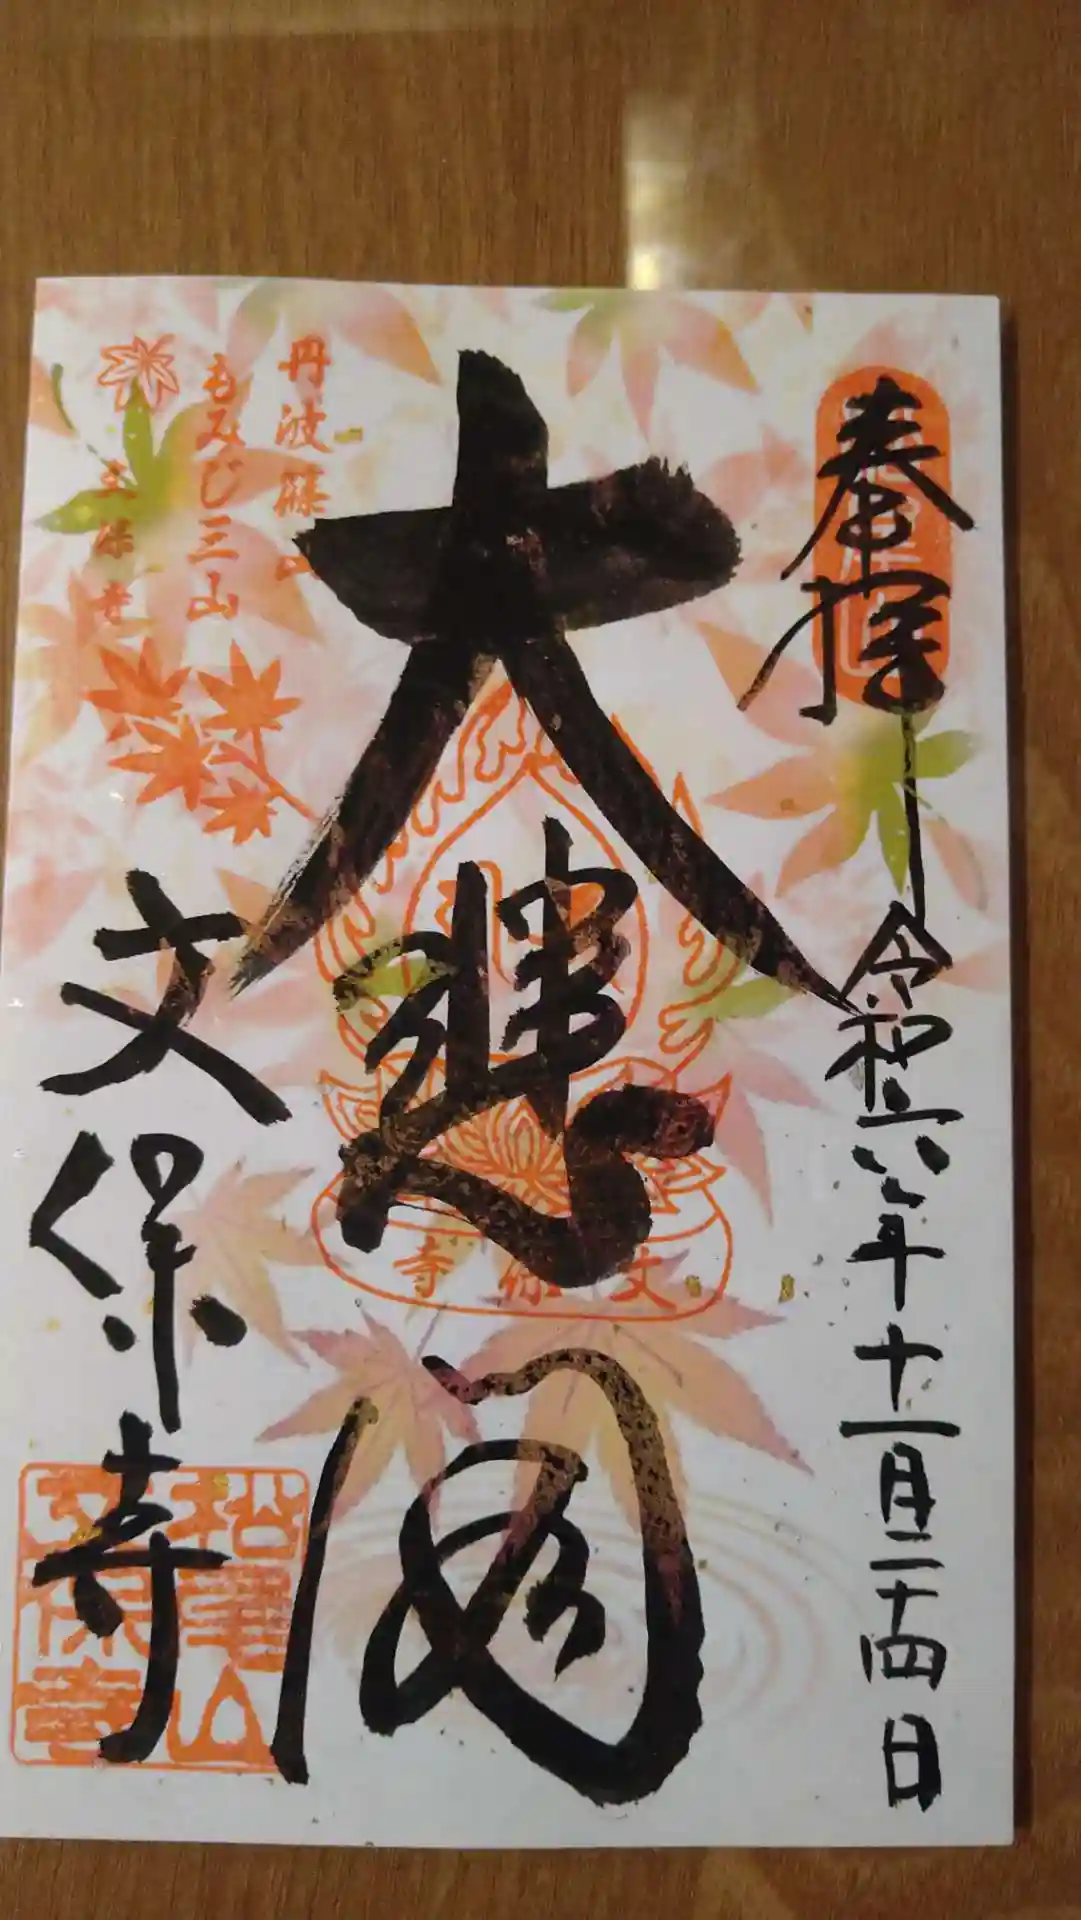 奉拝
令和六年十一月二十四日
大悲閣
丹波篠山
もみじ三山
文保寺
文保寺
文保寺
松尾山
文保寺